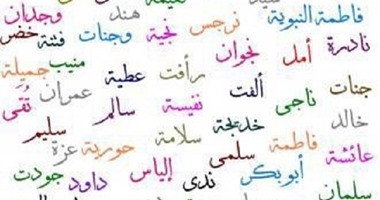 فاطمة النبوية نرجس نجية هند وجنات فتنة وجدان خضر
نادرة أمل نجوان رأفت عطية منيب جميلة
جنات ناجى ألفت نفيسة سالم عمران تُقى
خالد خديجة سلامة حورية سليم
عائشة فاطمة سلمى عزة
سلمان أبو بكر ندى إلياس داود جودت